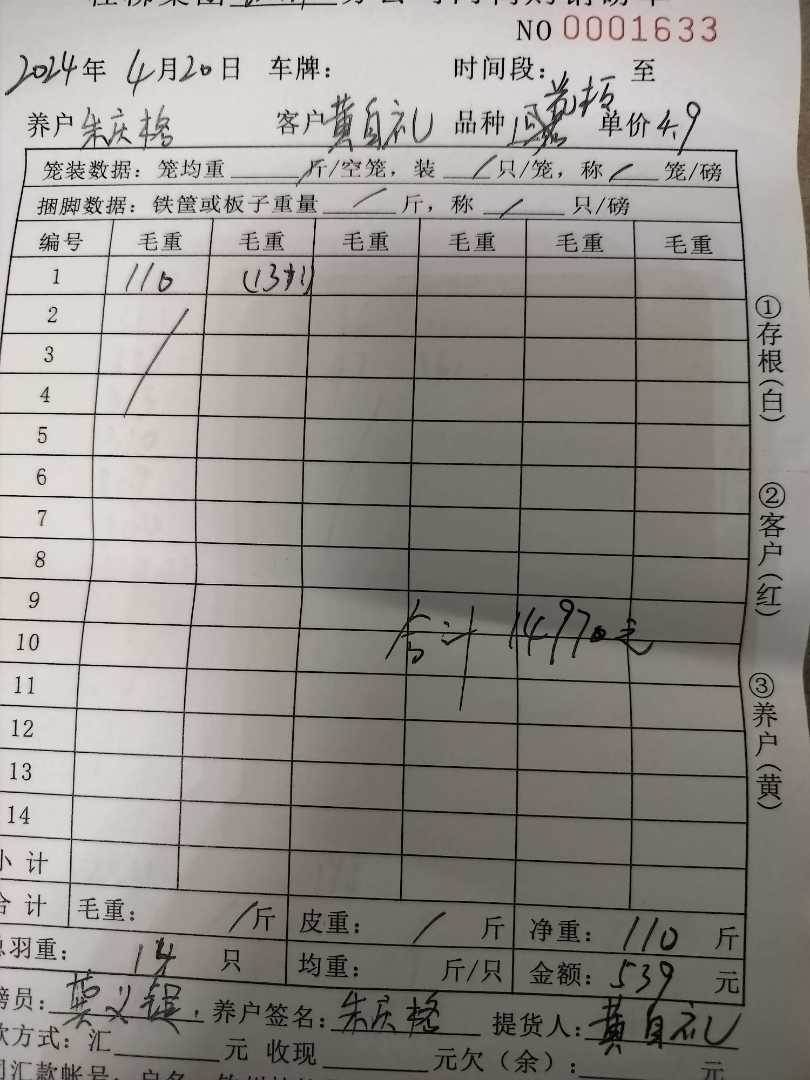 NO 0001633
2024年 4月20日 车牌： 时间段： 至
养户 朱庆格 客户 黄自礼 品种 单价 4.9
笼装数据：笼均重 / 斤/空笼，装 / 只/笼，称 / 笼/磅
捆脚数据：铁筐或板子重量 / 斤，称 / 只/磅
编号 毛重 毛重 毛重 毛重 毛重 毛重
1 110
2
3
4
5
6
7
8
9
10 合计 14970元
11
12
13
14
小计
合计 毛重： / 斤 皮重： / 斤 净重：110 斤
总羽重： 14 只 均重： 斤/只 金额：539 元
磅员： 养户签名：朱庆格 提货人：黄自礼
款方式：汇 元 收现 元欠（余）： 元
①存根（白）
②客户（红）
③养户（黄）